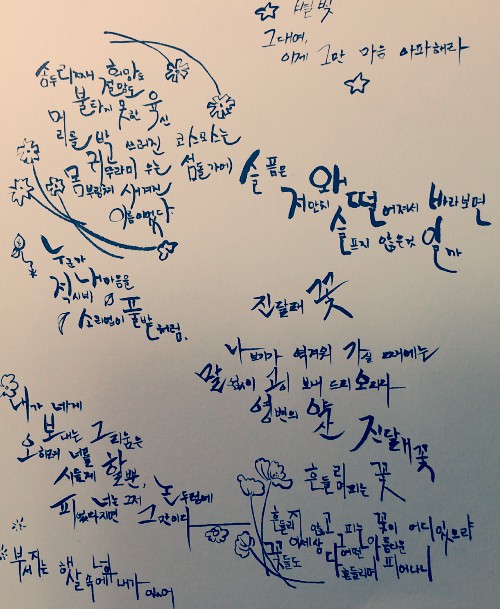 별빛
그대여,
이제 그만 마음 아파해라
송두리째 희망도
절망도
불타지 못한 육신
머리를 박고 쓰러진 코스모스는
귀뚜라미 우는 섬돌가에
몸부림쳐 새겨진
이름이었다
슬픔은
왜
저만치 떨어져서 바라보면
슬프지 않은 것일까
누군가
내 마음을
적시네
소리없이 풀밭처럼,
진달래꽃
나 보기가 역겨워 가실 때에는
말없이 고이 보내 드리오리다
영변의 약산 진달래꽃
내가 네게
보내는 그리움은
오히려 너를
시들게 할 뿐,
너는 그저 논두렁에
피었다지면 그만이다
흔들리며 피는 꽃
흔들리지 않고 피는 꽃이 어디 있으랴
이 세상 그 어떤 아름다운
꽃들도 다 흔들리며 피어나니
부서지는 햇살 속에 내가 있어